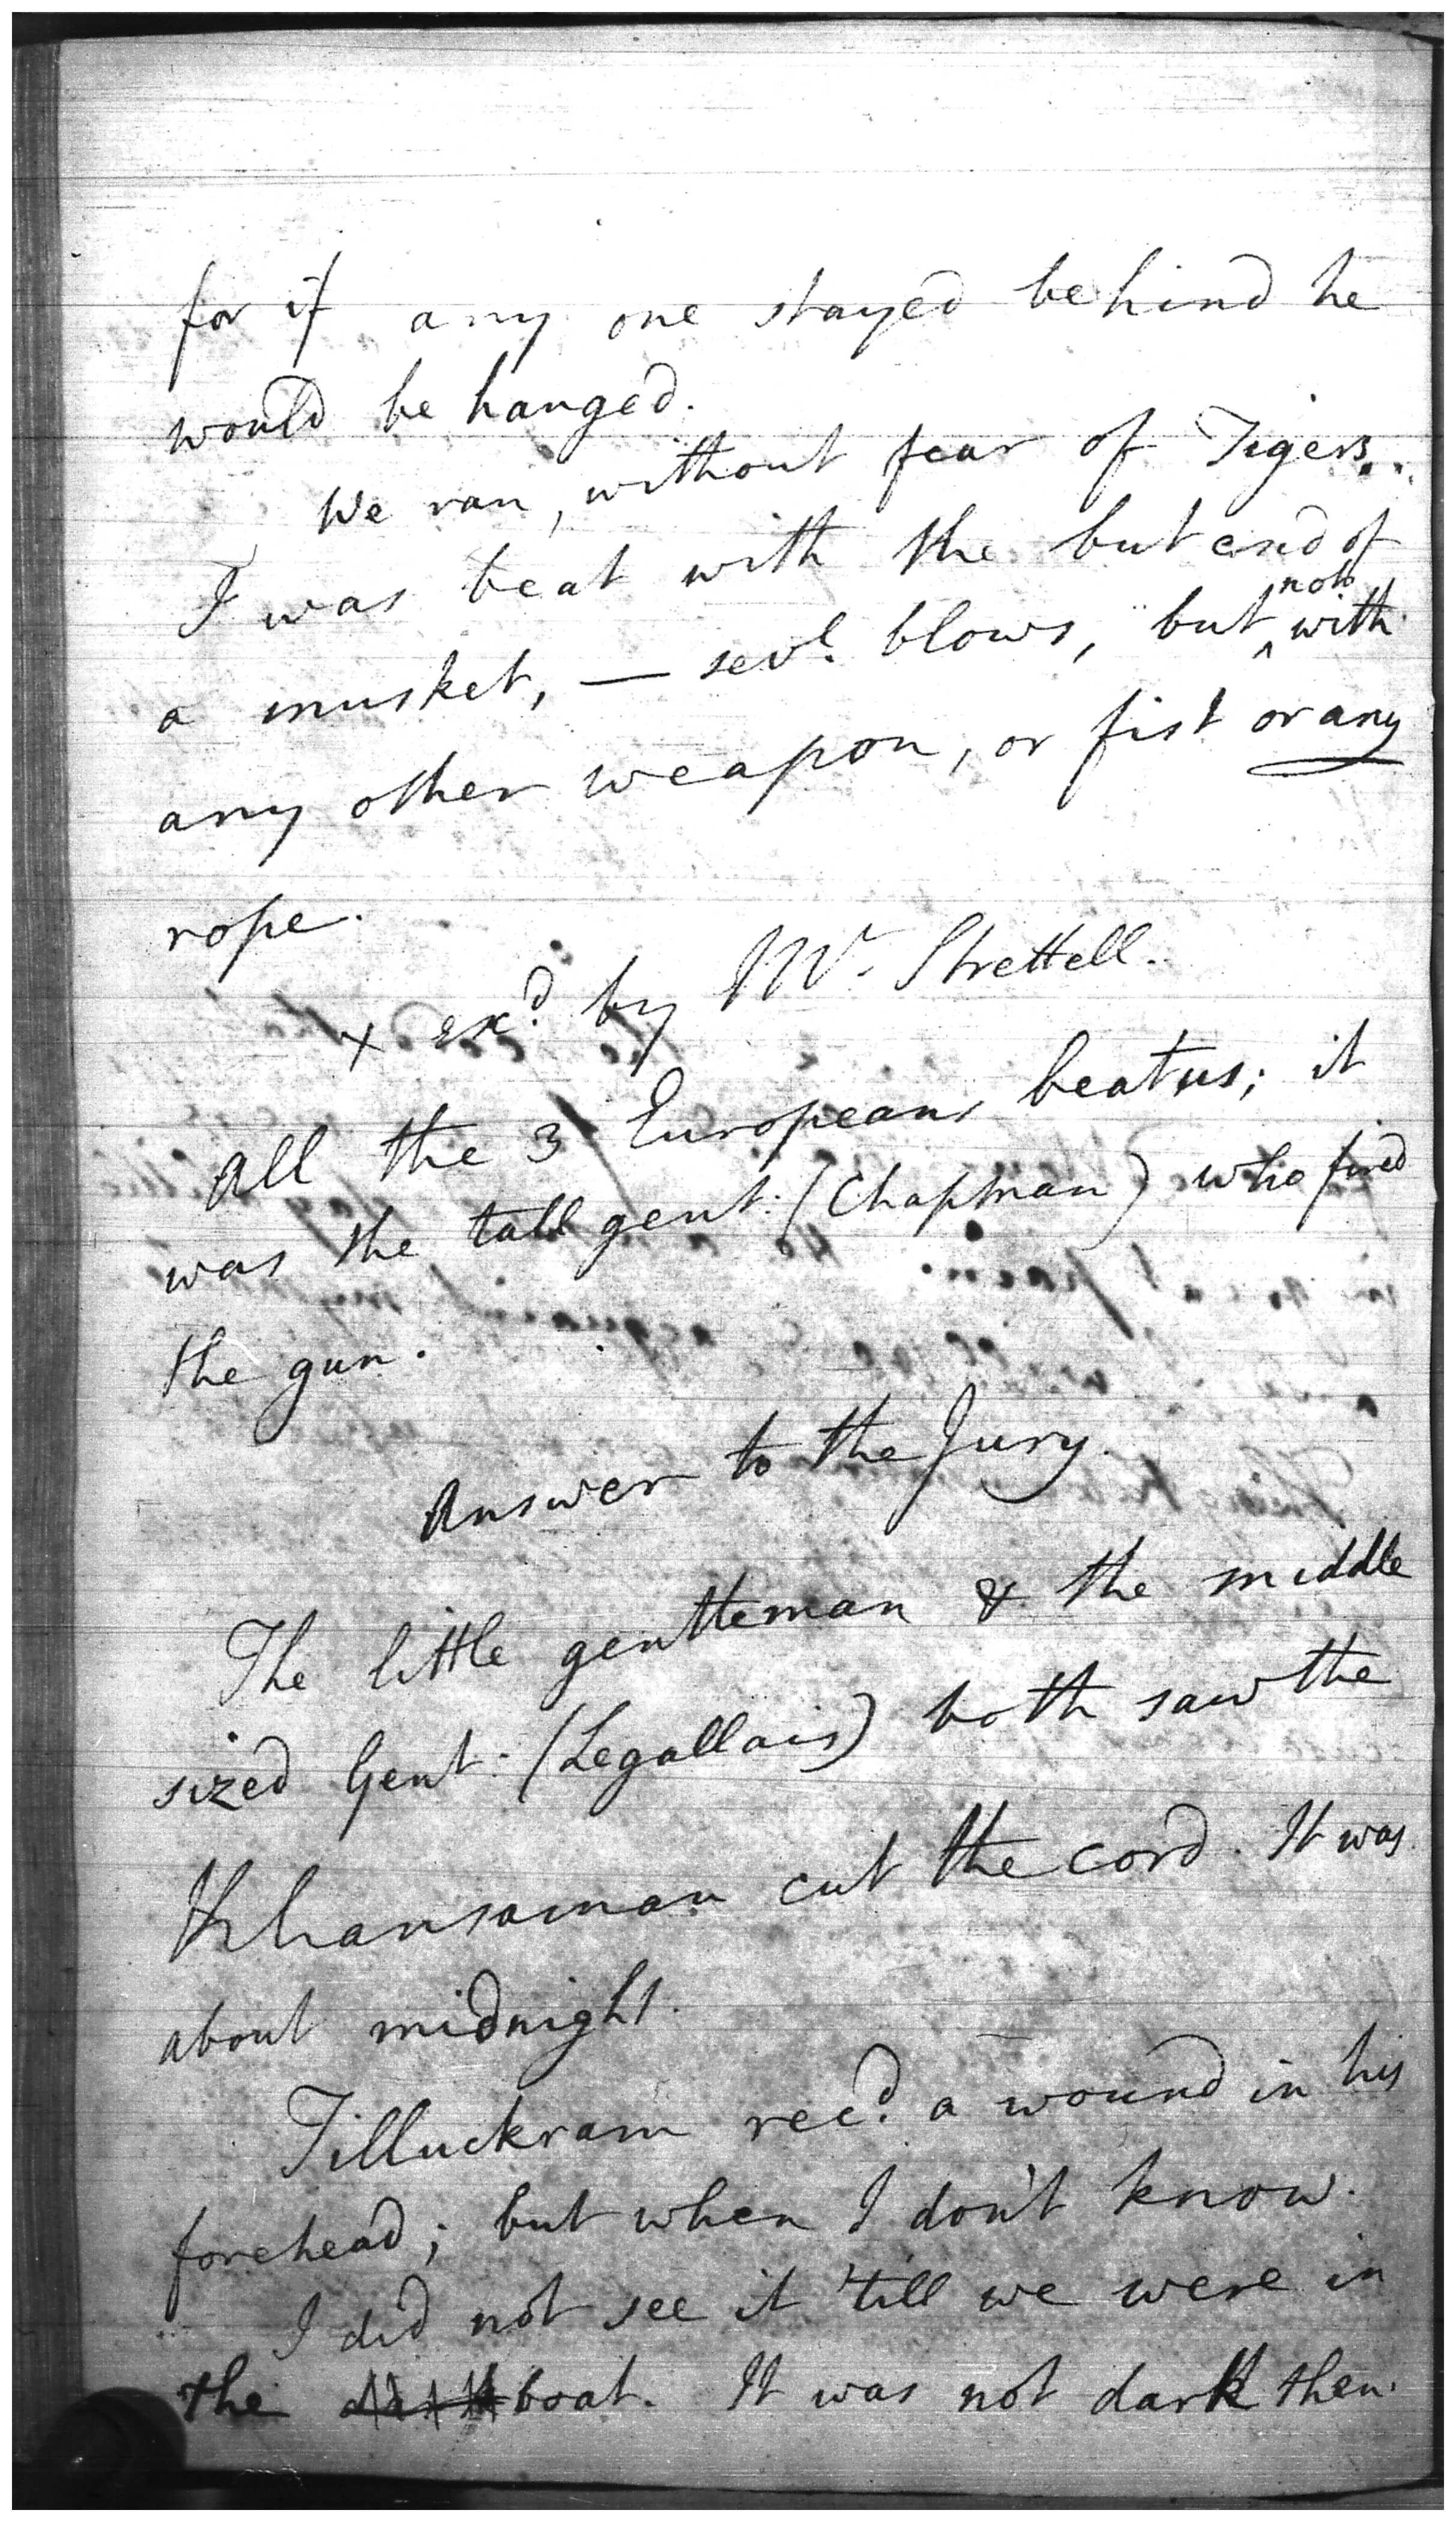 for if any one stayed behind he
would be hanged.
We ran, without fear of Tigers..
I was beat with the but end of
a musket, — sevl. blows, but ^not with
any other weapon, or fist or any
rope.
x exd. by Mr. Strettell.
All the 3 Europeans beat us; it
was the tall gent: (Chapman) who fired
the gun.
Answer to the Jury.
The little gentleman & the middle
sized Gent: (Legallais) both saw the
Khansaman cut the cord. It was
about midnight.
Tilluckram recd. a wound in his
forehead; but when I don't know.
I did not see it 'till we were in
the boat. It was not dark then.